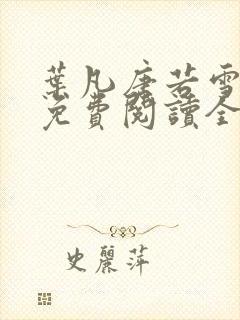 葉凡唐若雪
免費閱讀全
史麗萍